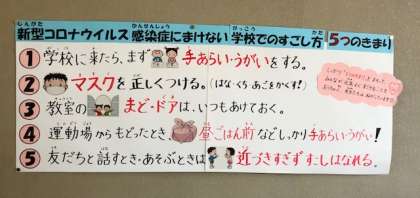 新型コロナウイルス感染症にまけない学校でのすごし方 5つのきまり
① 学校に来たら、まず手あらい・うがいをする。
② マスクを正しくつける。(はな・くち・あごをかくす!)
③ 教室のまど・ドアは、いつもあけておく。
④ 運動場からもどったとき、昼ごはん前などしっかり手あらい・うがい!
⑤ 友だちと話すとき・あそぶときは近づきすぎず すこしはなれる。